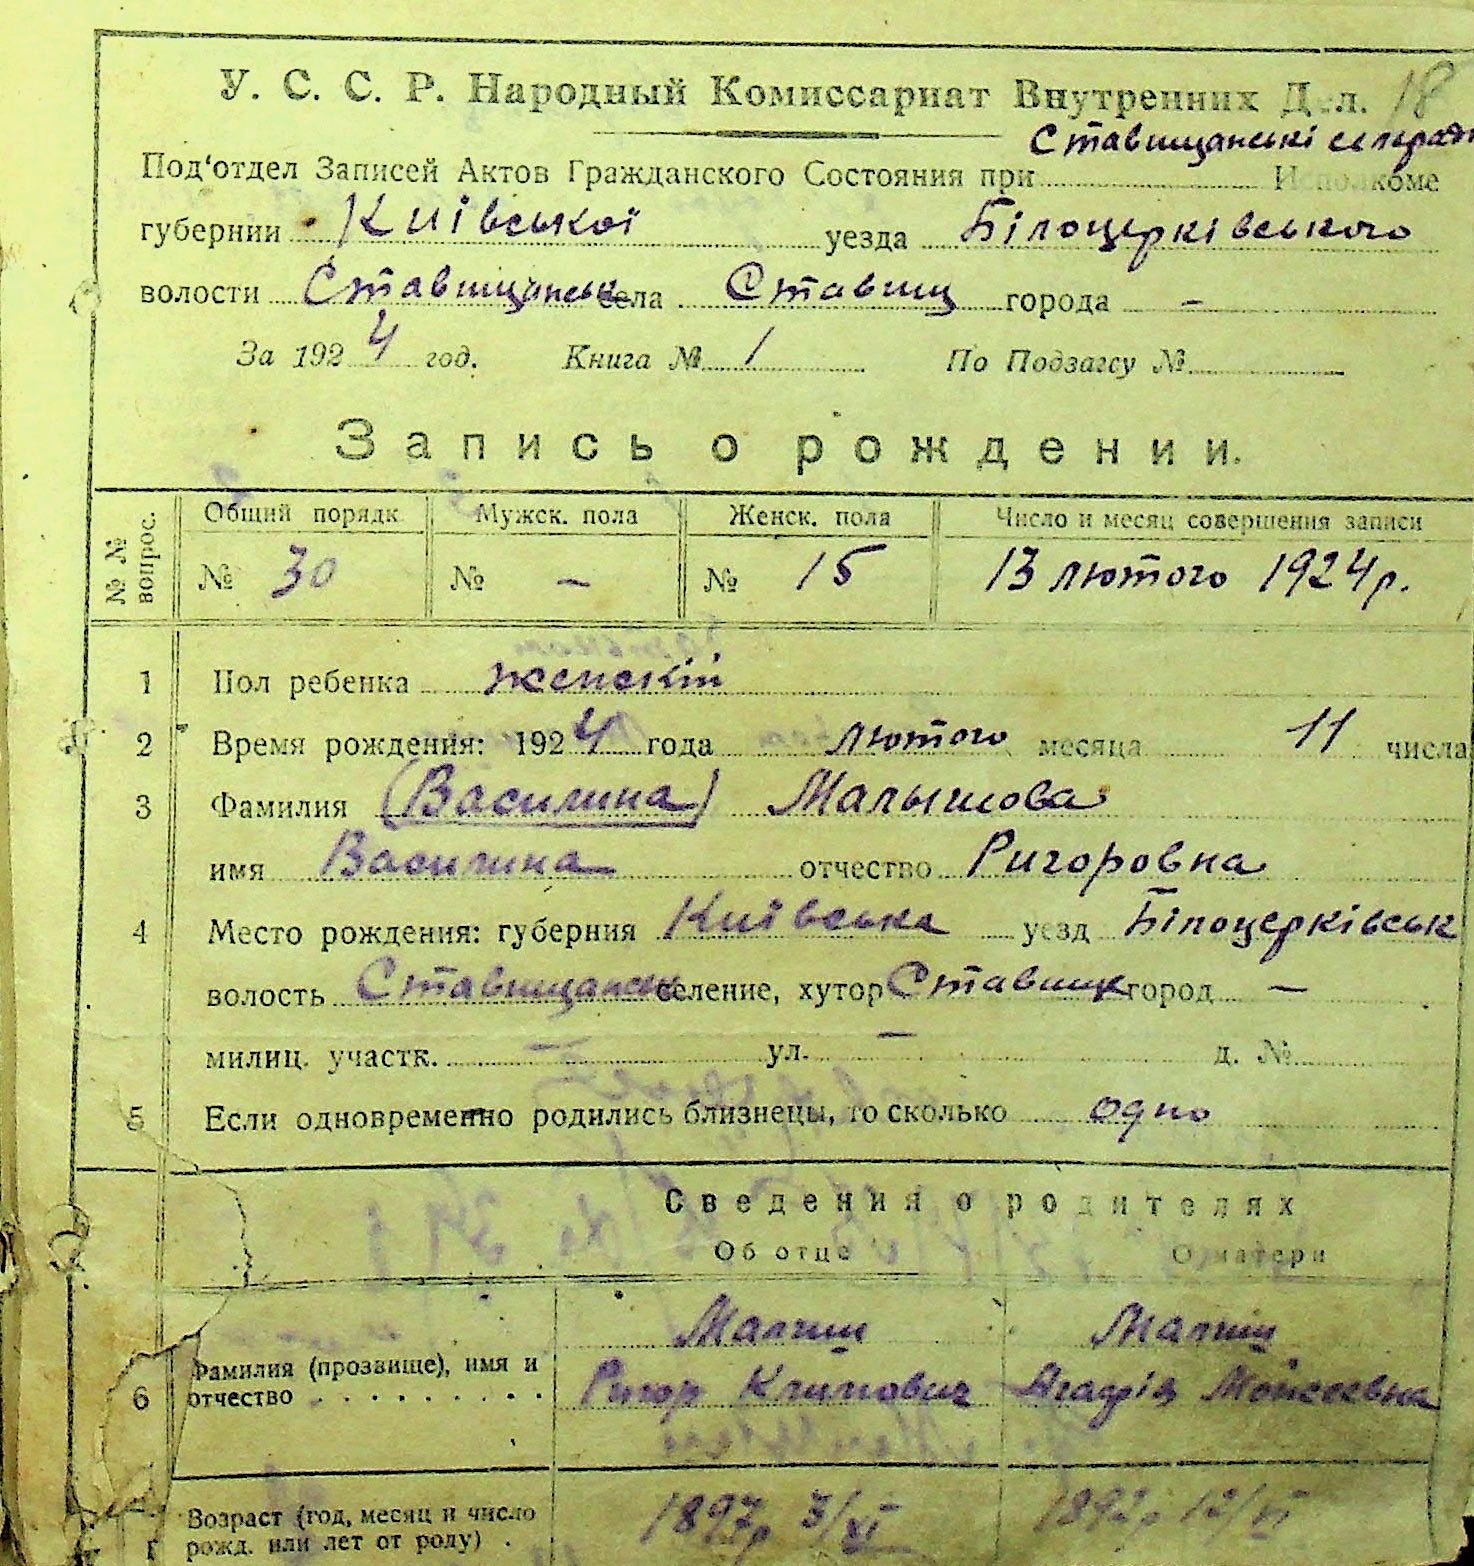 У. С. С. Р. Народный Комиссариат Внутренних Дел. 18
Ставищанські сельради
Под'отдел Записей Актов Гражданского Состояния при Исполкоме
губернии Київської уезда Білоцерківського
волости Ставищанськ села Ставищ города —
За 1924 год. Книга № 1 По Подзагсу №
Запись о рождении.
№ № вопрос. Общий порядк. Мужск. пола Женск. пола Число и месяц совершения записи
№ 30 № — № 15 13 лютого 1924 р.
1 Пол ребенка женскій
2 Время рождения: 1924 года лютого месяца 11 числа
3 Фамилия (Василина) Малышова
имя Василина отчество Ригоровна
4 Место рождения: губерния Київська уезд Білоцерківськ
волость Ставищанськ селение, хутор Ставищ город —
милиц. участк. — ул. — д. №
5 Если одновременно родились близнецы, то сколько одно
Сведения о родителях
Об отце О матери
Малиш Малиш
6 Фамилия (прозвище), имя и
отчество Ригор Климович Мойсеевна
Возраст (год, месяц и число
рожд. или лет от роду) 1897р 3/XI 12/VI